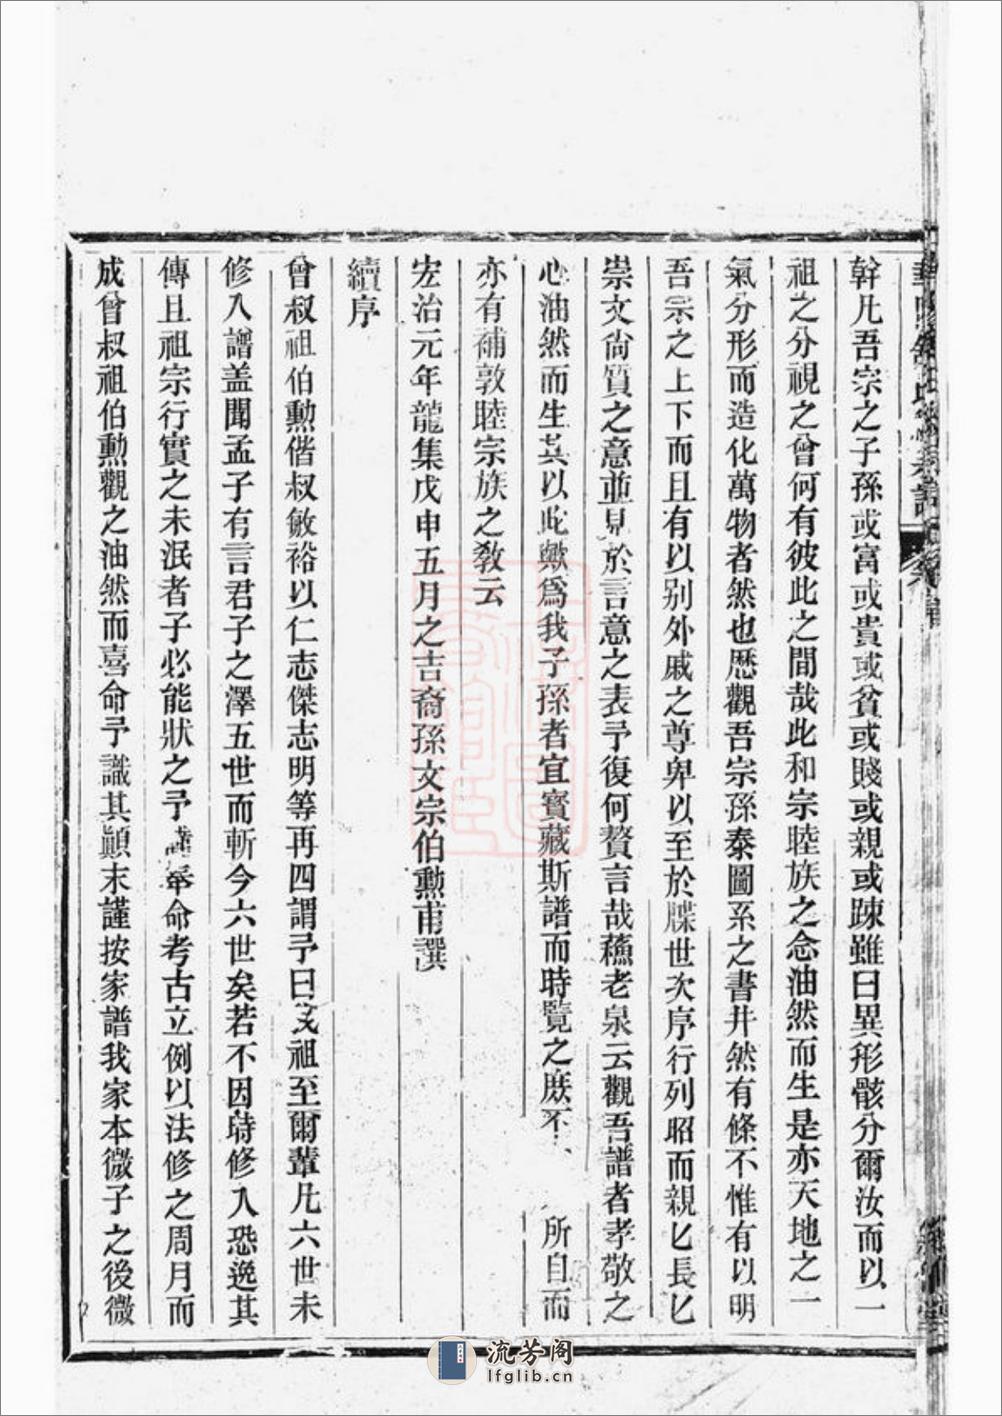 幹凡吾宗之子孫或富或貴或貧或賤或親或踈雖曰異形骸分爾汝而以一
祖之分視之曾何有彼此之間哉此和宗睦族之念油然而生是亦天地之一
氣分形而造化萬物者然也歷觀吾宗孫泰圖系之書井然有條不惟有以明
吾宗之上下而且有以别外戚之尊卑以至於牒世次序行列昭而親匕長匕
崇文尙質之意並見於言意之表予復何贅言哉蘓老泉云觀吾譜者孝敬之
心油然而生其以此歟爲我子孫者宜寳藏斯譜而時覽之庻不 所自而
亦有補敦睦宗族之敎云
宏治元年龍集戊申五月之吉裔孫文宗伯勲甫譔
續序
曾叔祖伯勲偕叔敏裕以仁志傑志明等再四謂予曰 祖至爾輩凡六世未
修入譜盖聞孟子有言君子之澤五世而斬今六世矣若不因時修入恐逸其
傳且祖宗行實之未泯者子必能狀之予 命考古立例以法修之周月而
成曾叔祖伯勲觀之油然而喜命予識其顛末謹按家譜我家本微子之後微
流芳阁
lfglib.cn